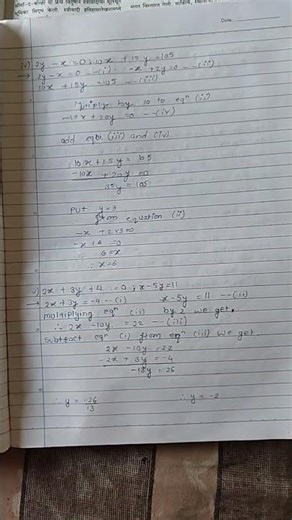 Date
(v) 2y - x = 0 ; 10x + 15y = 105
→ 2y - x = 0 - (i) -x + 2y = 0 - (ii)
10x + 15y = 105 - (iii)
Multiply by 10 to eqⁿ (ii)
-10x + 20y = 0 - (iv)
add eqⁿ (iii) and (iv)
10x + 15y = 105
-10x + 20y = 0
35y = 105
Put y = 3
from equation (ii)
-x + 2×3 = 0
-x + 6 = 0
6 = x
∴ x = 6
2x + 3y + 4 = 0 ; x - 5y = 11
→ 2x + 3y = -4 - (i) x - 5y = 11 - (ii)
multiplying eqⁿ (ii) by 2 we get.
∴ 2x - 10y = 22 - (iii)
subtract eqⁿ (i) from eqⁿ (iii) we get
2x - 10y = 22
-2x + 3y = -4
-13y = 26
∴ y = -26/13 ∴ y = -2